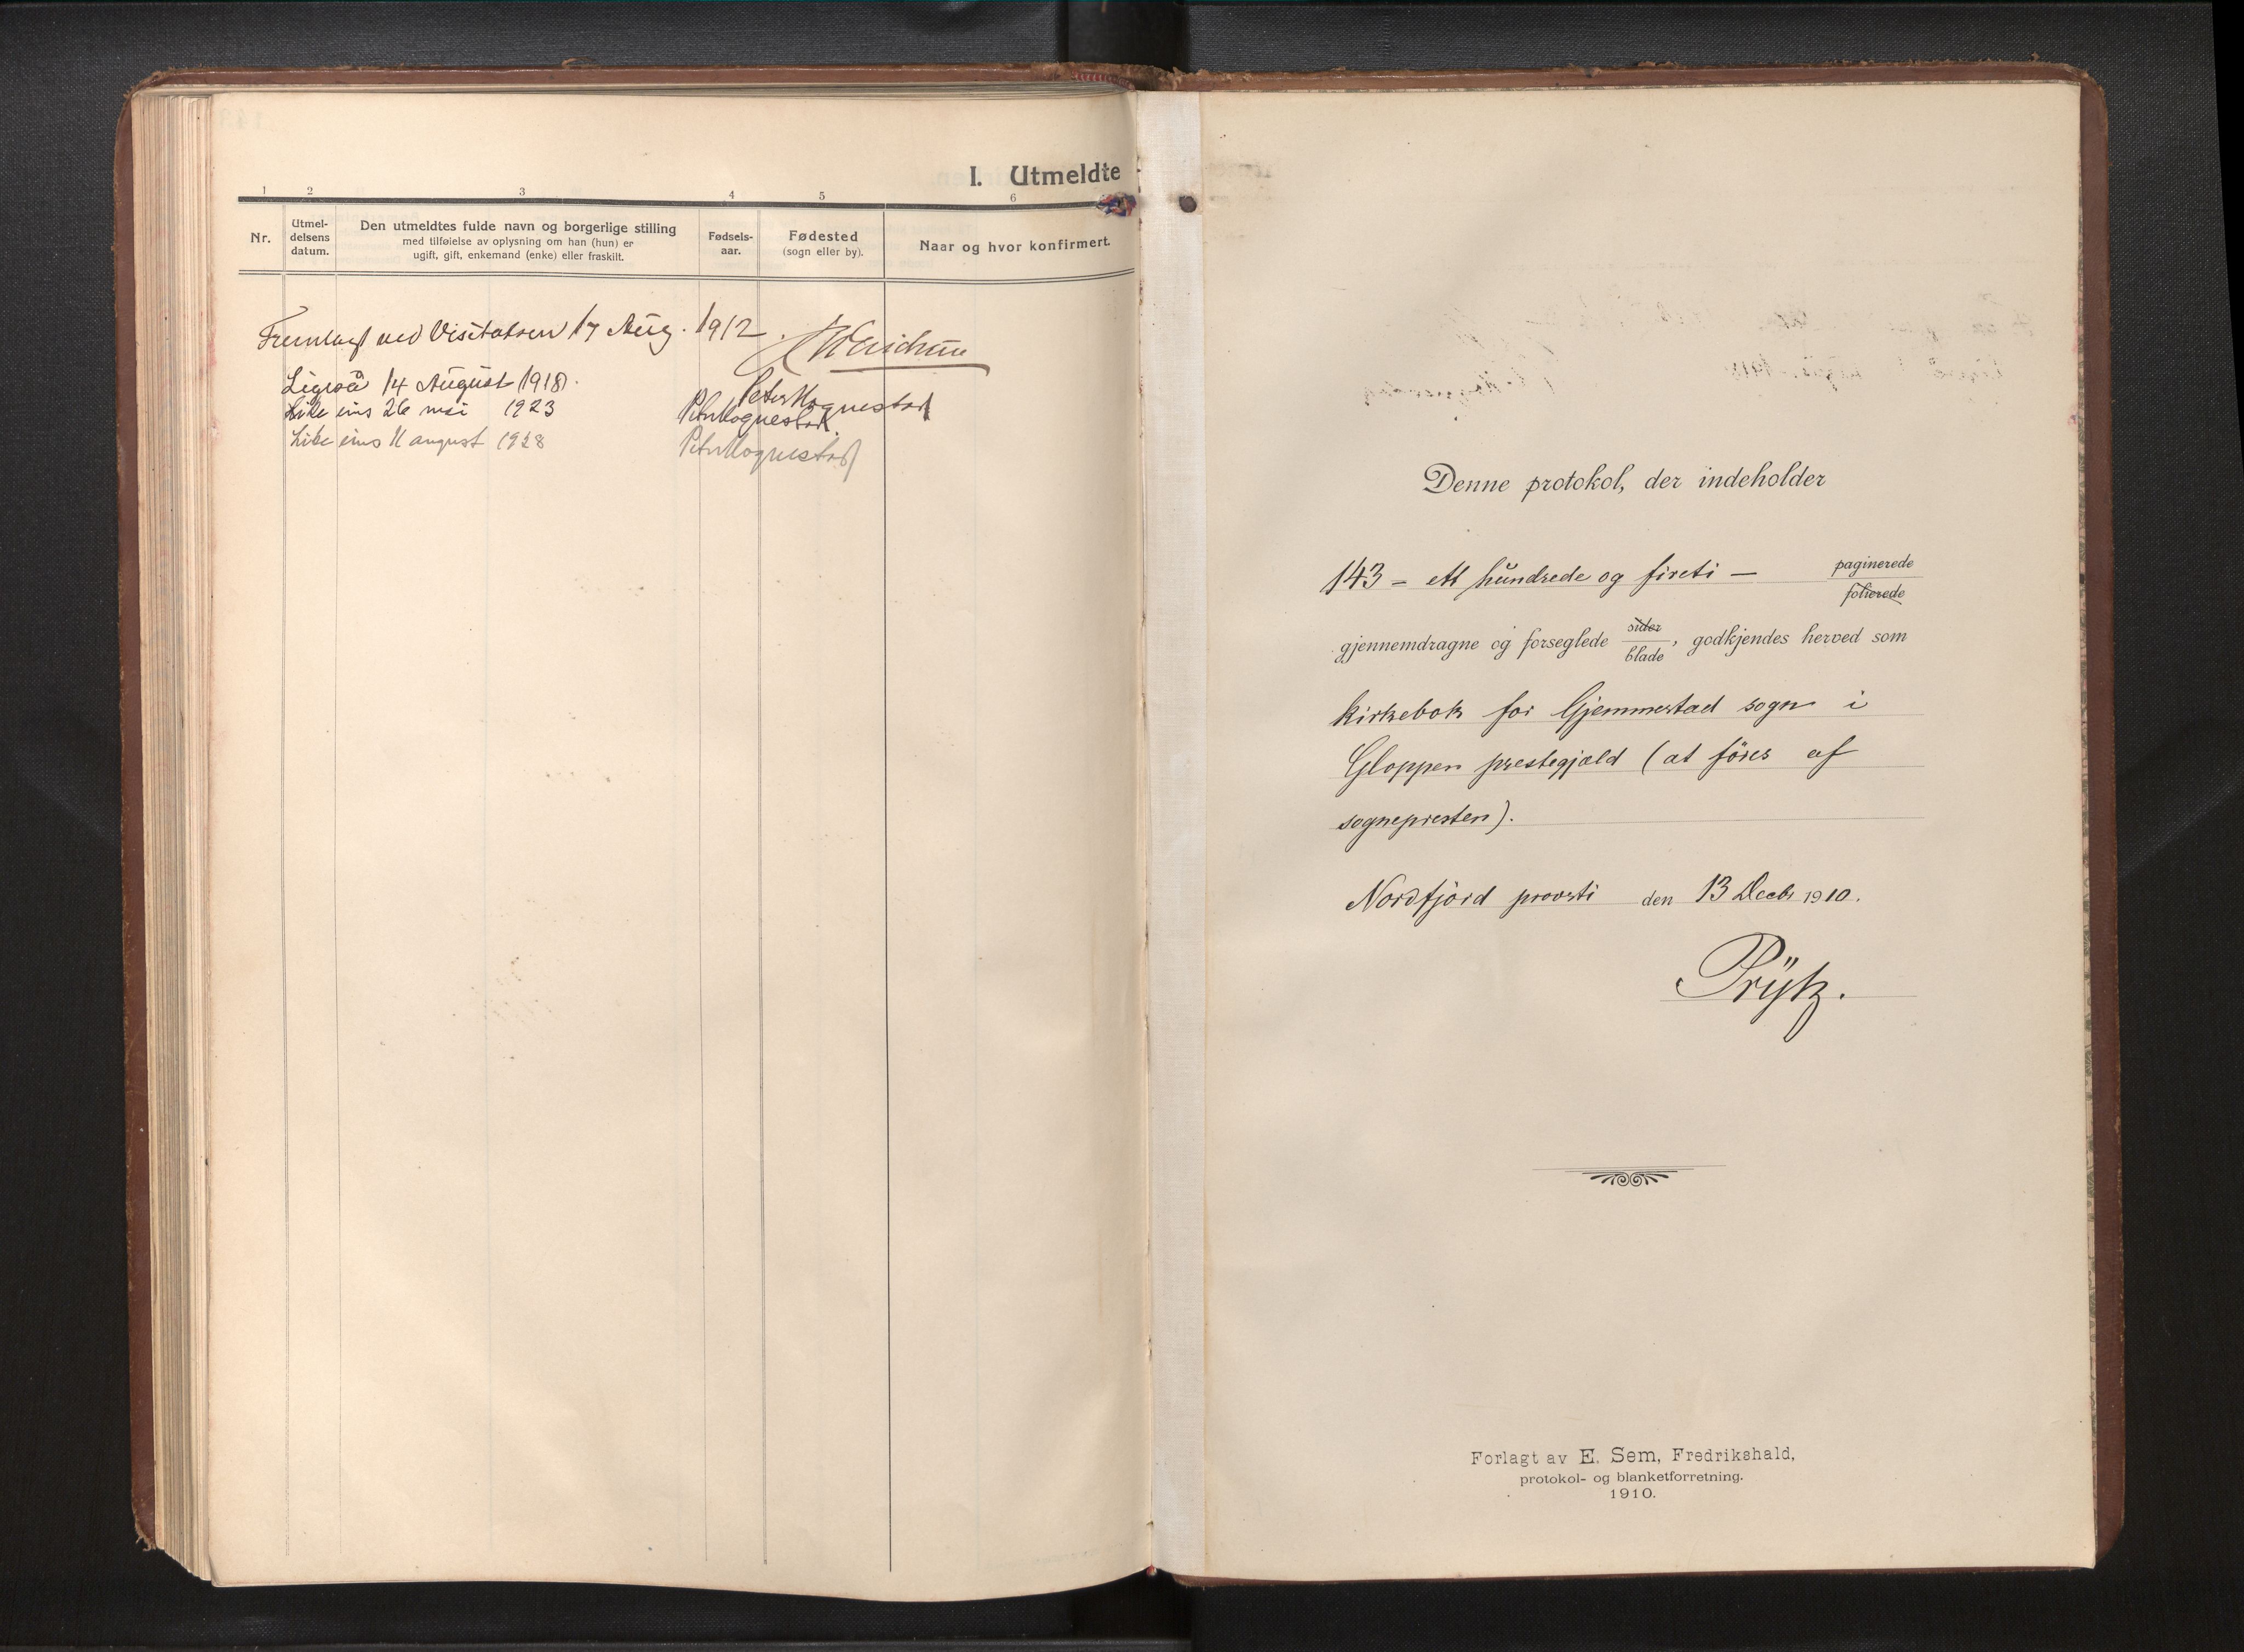 I. Utmeldte
1 2 3 4 5 6
Nr.
Utmel-
delsens
datum.
Den utmeldtes fulde navn og borgerlige stilling
med tilføielse av oplysning om han (hun) er
ugift, gift, enkemand (enke) eller fraskilt.
Fødsels-
aar.
Fødested
(sogn eller by).
Naar og hvor konfirmert.
Fremlagt ved Visitatsen 17 Aug. 1912.
Ligeså 14 August 1918. Peter Hognestad
Like eins 26 mai 1923 Petr Hognestad.
Like eins 11 august 1928 Petr Hognestad
Denne protokol, der indeholder
143 – ett hundrede og fireti – paginerede
folierede
gjennemdragne og forseglede sider
blade, godkjendes herved som
kirkebok for Gjemmestad sogn i
Gloppen prestegjæld (at föres af
sognepresten).
Nordfjord provsti den 13 Decbr 1910.
Prÿtz.
Forlagt av E. Sem, Fredrikshald,
protokol- og blanketforretning.
1910.